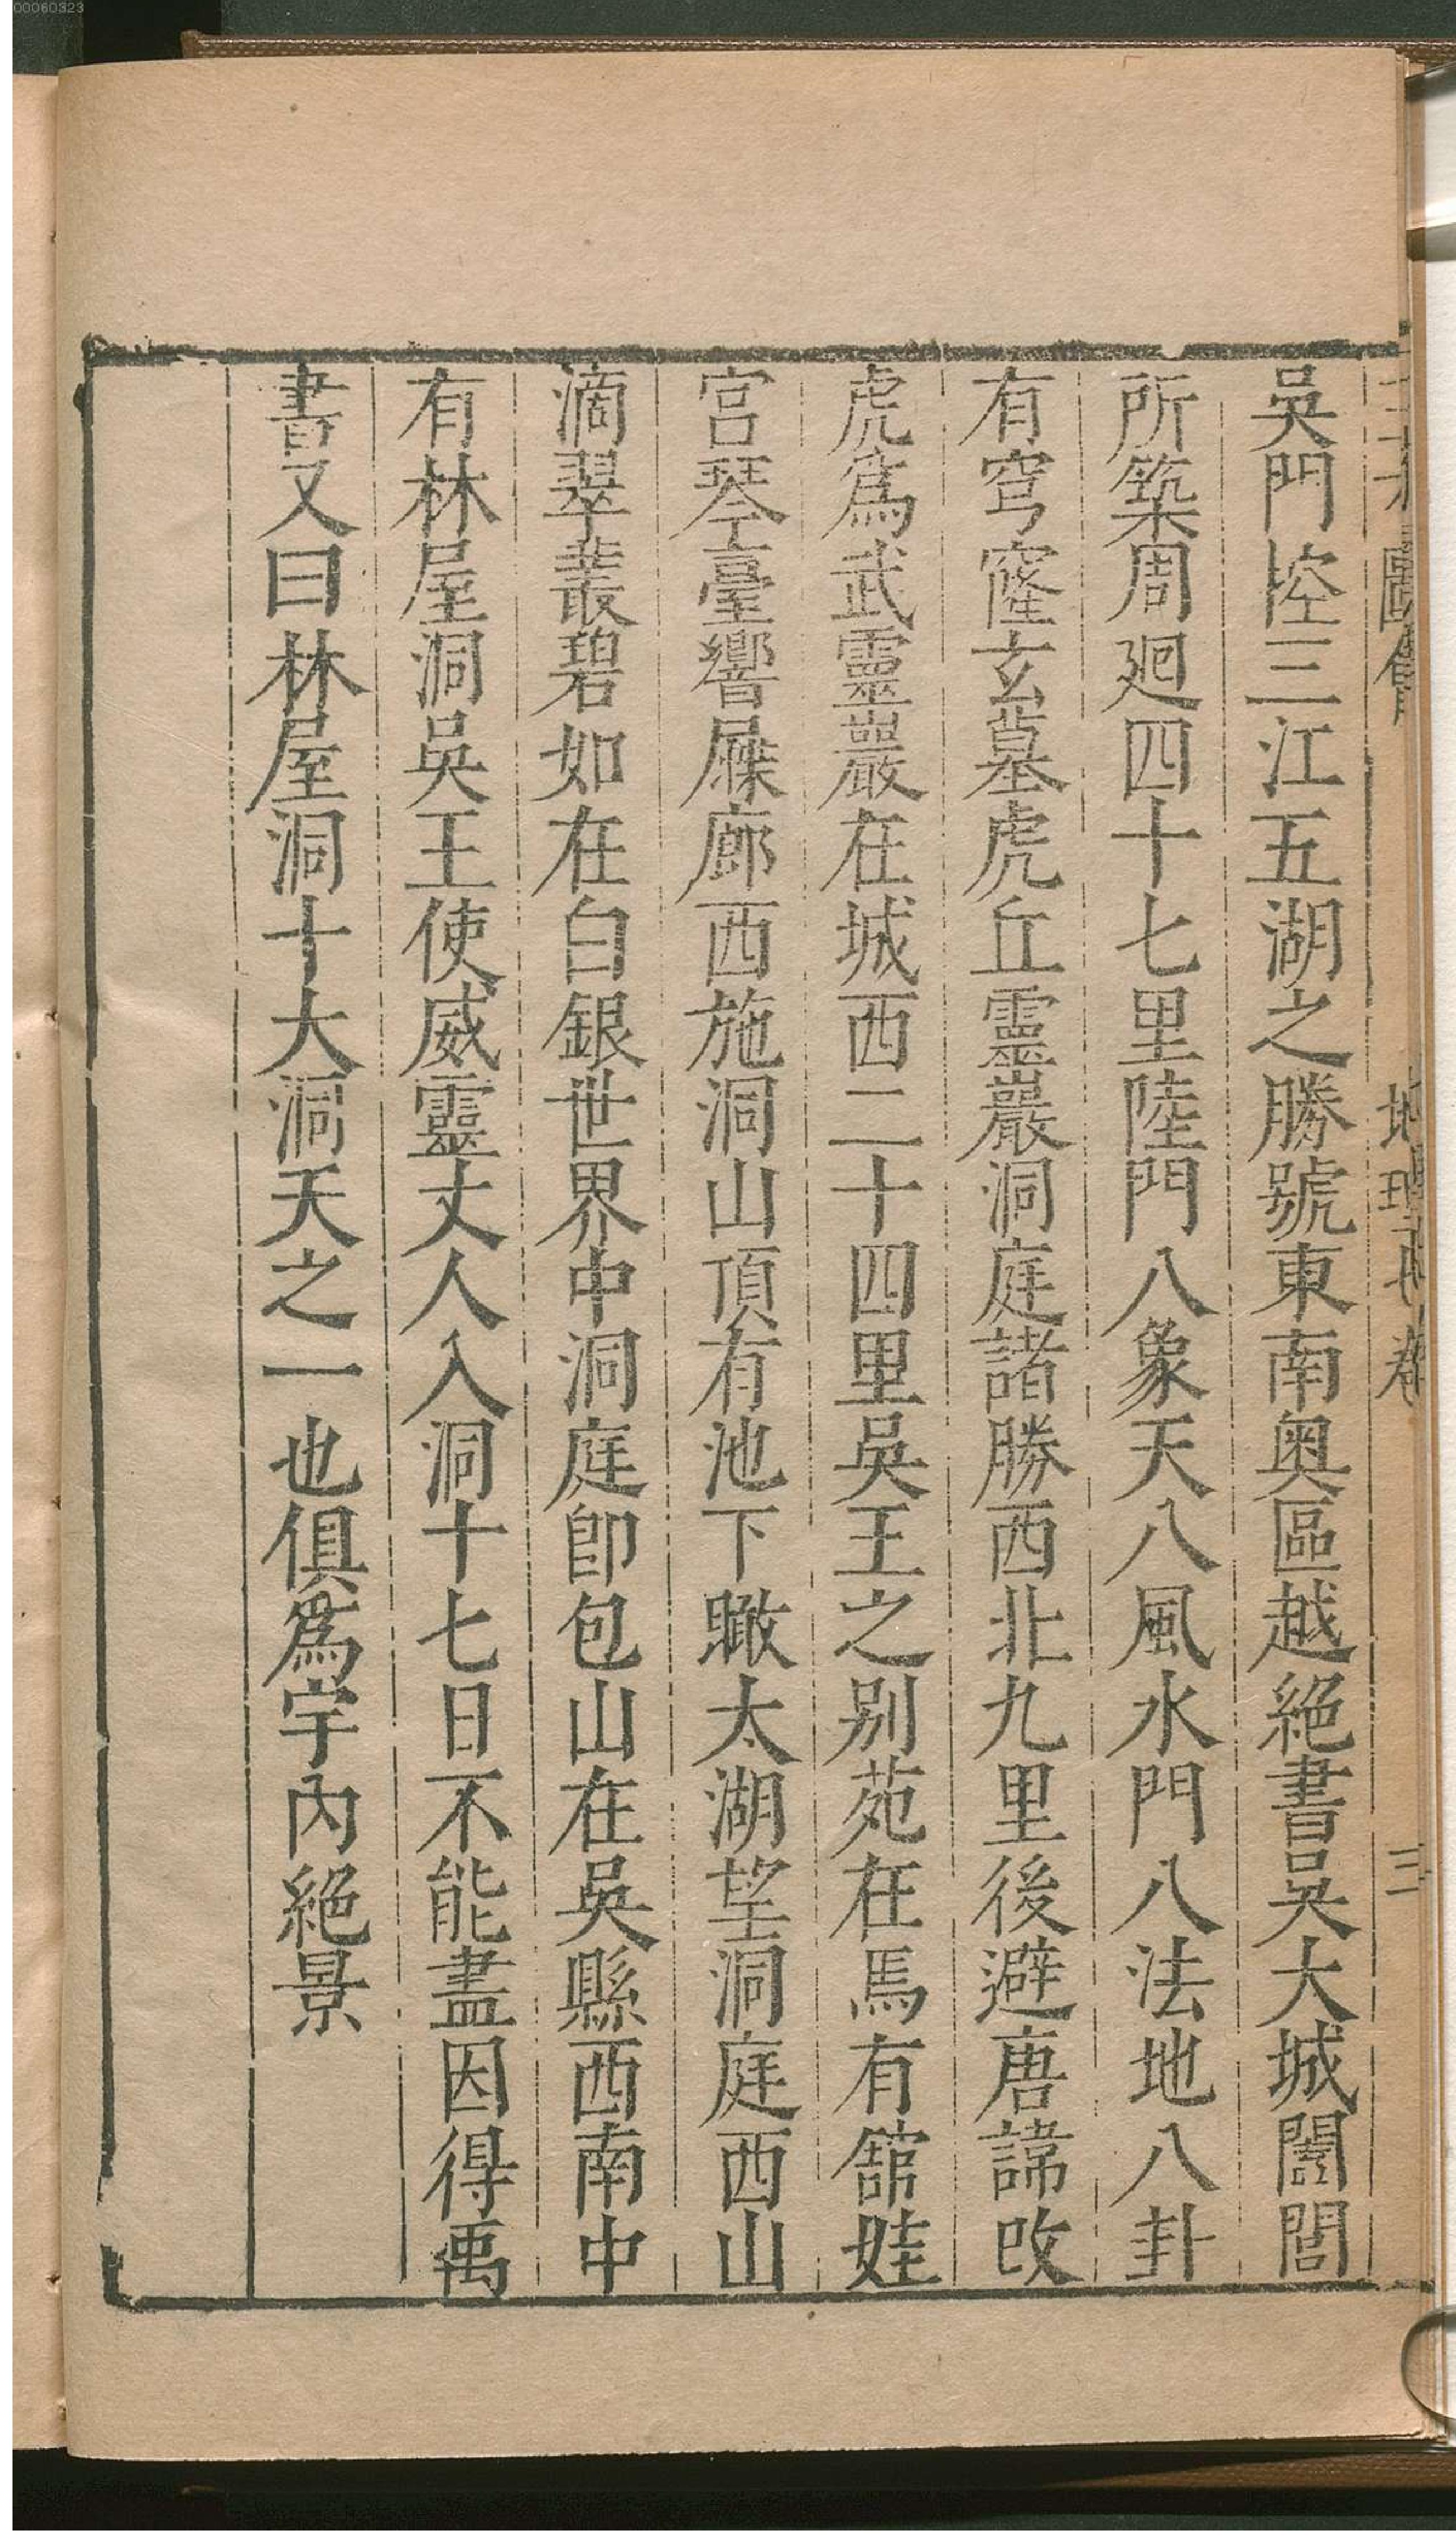 00060323
吳門控三江五湖之勝號東南奧區越絕書吳大城闔閭
所築周廻四十七里陸門八象天八風水門八法地八卦
有穹窿玄墓虎丘靈巖洞庭諸勝西北九里後避唐諱改
虎爲武靈巖在城西二十四里吳王之别苑在焉有舘娃
宫琴臺響屧廊西施洞山頂有池下瞰太湖望洞庭西山
滴翠叢碧如在白銀世界中洞庭卽包山在吳縣西南中
有林屋洞吳王使威靈丈人入洞十七日不能盡因得禹
書又曰林屋洞十大洞天之一也俱爲宇內絕景